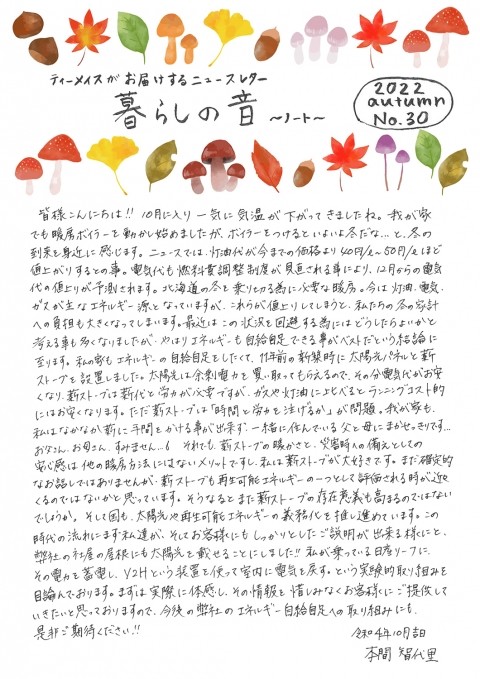 ティーメイスがお届けするニュースレター
暮らしの音 ~ノート~
2022
autumn
No.30
皆様こんにちは!! 10月に入り一気に気温が下がってきましたね。我が家
でも暖房ボイラーを動かし始めましたが、ボイラーをつけるといよいよ冬だな…と、冬の
到来を身近に感じます。ニュースでは、灯油代が今までの価格より40円/ℓ~50円/ℓほど
値上がりするとの事。電気代も燃料費調整制度が見直される事により、12月からの電気
代の値上りが予測されます。北海道の冬を乗り切る為に必要な暖房。今は灯油、電気、
ガスが主なエネルギー源となっていますが、これらが値上りしてしまうと、私たちの冬の家計
への負担も大きくなってしまいます。最近はこの状況を回避する為にはどうしたらよいかと
考える事も多くなりましたが、やはりエネルギーも自給自足できる事がベストだという結論に
至ります。私の家もエネルギーの自給自足をしたくて、11年前の新築時に太陽光パネルと薪
ストーブを設置しました。太陽光は余剰電力を買い取ってもらえるので、その分電気代がお安
くなり、薪ストーブは薪代と労力が必要ですが、ガスや灯油に比べるとランニングコスト的
にはお安くなります。ただ薪ストーブは「時間と労力を注げるか」が問題。我が家も、
私はなかなか薪に手間をかける事が出来ず、一緒に住んでいる父と母にまかせっきりです…
お父さん、お母さん、すみません…。それでも、薪ストーブの暖かさと、災害時への備えとしての
安心感は他の暖房方法にはないメリットですし、私は薪ストーブが大好きです。まだ確定的
なお話しではありませんが、薪ストーブも再生可能エネルギーの一つとして評価される時が近く
くるのではないかと思っています。そうなるとまた薪ストーブの存在意義も高まるのではない
でしょうか。そして国も、太陽光や再生可能エネルギーの義務化を推し進めています。この
時代の流れにまず私達が、そしてお客様にもしっかりとしたご説明が出来る様にと、
弊社の社屋の屋根にも太陽光を載せることにしました!! 私が乗っている日産リーフに、
その電力を蓄電し、V2Hという装置を使って室内に電気を戻す。という実験的取り組みを
目論んでおります。まずは実際に体感し、その情報を惜しみなくお客様にご提供して
いきたいと思っておりますので、今後の弊社のエネルギー自給自足への取り組みにも
是非ご期待ください!!
令和4年10月吉日
本間 智代里